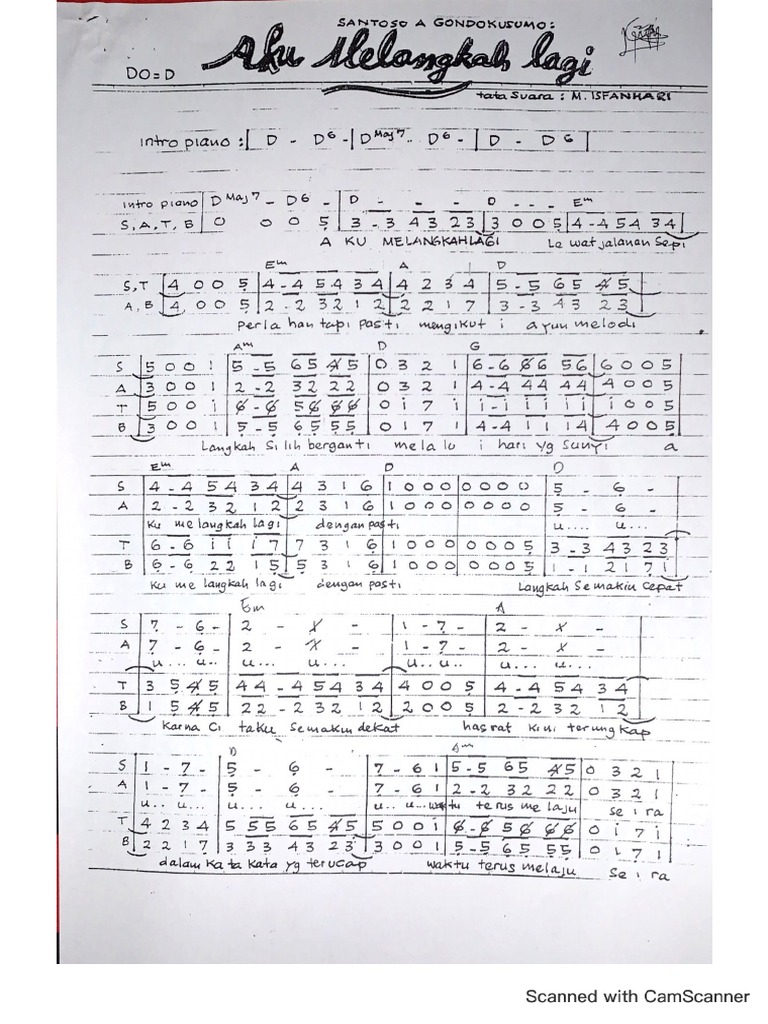 SANTOSO A GONDOKUSUMO:
Aku Melangkah lagi
DO = D
tata suara : M. ISFANHARI
Intro piano : | D - D6 - | DMaj7 - D6 - | D - D6 |
Intro piano | DMaj7 - D6 - | D - - - | D - - - | Em
S, A, T, B 0 0 0 5 | 3 - 3 4 3 2 3 | 3 0 0 5 | 4 - 4 5 4 3 4
A KU MELANGKAH LAGI Le wat jalanan sepi
Em A D
S, T 4 0 0 5 | 4 - 4 5 4 3 4 | 4 2 3 4 | 5 - 5 6 5 4 5
A, B 4 0 0 5 | 2 - 2 3 2 1 2 | 2 2 1 7 | 3 - 3 4 3 2 3
Perla han tapi pasti mengikut i ayun melodi
Am D G
S 5 0 0 1 | 5 - 5 6 5 4 5 | 0 3 2 1 | 6 - 6 6 6 5 6 | 6 0 0 5
A 3 0 0 1 | 2 - 2 3 2 2 2 | 0 3 2 1 | 4 - 4 4 4 4 4 | 4 0 0 5
T 5 0 0 i | 6 - 6 5 6 6 6 | 0 i 7 i | i - i i i i i | i 0 0 5
B 3 0 0 1 | 5 - 5 6 5 5 5 | 0 1 7 1 | 4 - 4 1 1 1 4 | 4 0 0 5
Langkah Silih berganti melalu i hari yg sunyi a
Em A D D
S 4 - 4 5 4 3 4 | 4 3 1 6 | 1 0 0 0 | 0 0 0 0 | 5 - 6 -
A 2 - 2 3 2 1 2 | 2 3 1 6 | 1 0 0 0 | 0 0 0 0 | 5 - 6 -
Ku me langkah lagi dengan pasti u.... u...
T 6 - 6 i i i 7 | 7 3 1 6 | 1 0 0 0 | 0 0 0 5 | 3 - 3 4 3 2 3
B 6 - 6 2 2 1 5 | 5 3 1 6 | 1 0 0 0 | 0 0 0 5 | 1 - 1 2 1 7 1
Ku me langkah lagi dengan pasti Langkah Semakin cepat
Em A
S 7 - 6 - | 2 - X - | 1 - 7 - | 2 - X -
A 7 - 6 - | 2 - X - | 1 - 7 - | 2 - X -
u... u.. u... u... u... u... u... u...
T 3 5 4 5 | 4 4 - 4 5 4 3 4 | 4 0 0 5 | 4 - 4 5 4 3 4
B 1 5 4 5 | 2 2 - 2 3 2 1 2 | 2 0 0 5 | 2 - 2 3 2 1 2
Karna Ci taku Semakin dekat hasrat kini terung kap
D Am
S 1 - 7 - | 5 - 6 - | 7 - 6 1 | 5 - 5 6 5 4 5 | 0 3 2 1
A 1 - 7 - | 5 - 6 - | 7 - 6 1 | 2 - 2 3 2 2 2 | 0 3 2 1
u... u... u... u... u.. u.. waktu terus me laju se i ra
T 4 2 3 4 | 5 5 5 6 5 4 5 | 5 0 0 i | 6 - 6 5 6 6 6 | 0 i 7 i
B 2 2 1 7 | 3 3 3 4 3 2 3 | 3 0 0 1 | 5 - 5 6 5 5 5 | 0 1 7 1
dalam Ka ta kata yg terucap waktu terus melaju Se i ra
Scanned with CamScanner